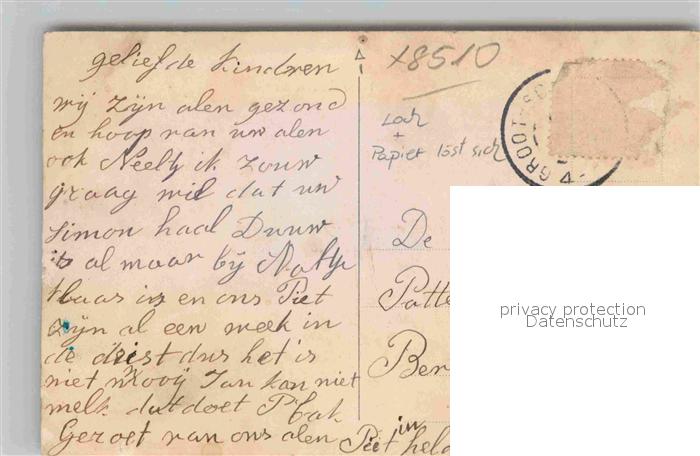 geliefde kinderen
wij zijn alen gezond
en hoop van uw alen
ook Neeltj ik zouw
graag wil dat uw
Simon haal Duuw
is al maar bij
baas in en ons Piet
zijn al een week in
de dus het is
niet mooij Jan kan niet
melk dat doet P Bak
Gezoet van ons alen Piet in held
x8510
Loch
+
Papier löst sich
GROOT-SC
De
Patte
Ber
privacy protection
Datenschutz